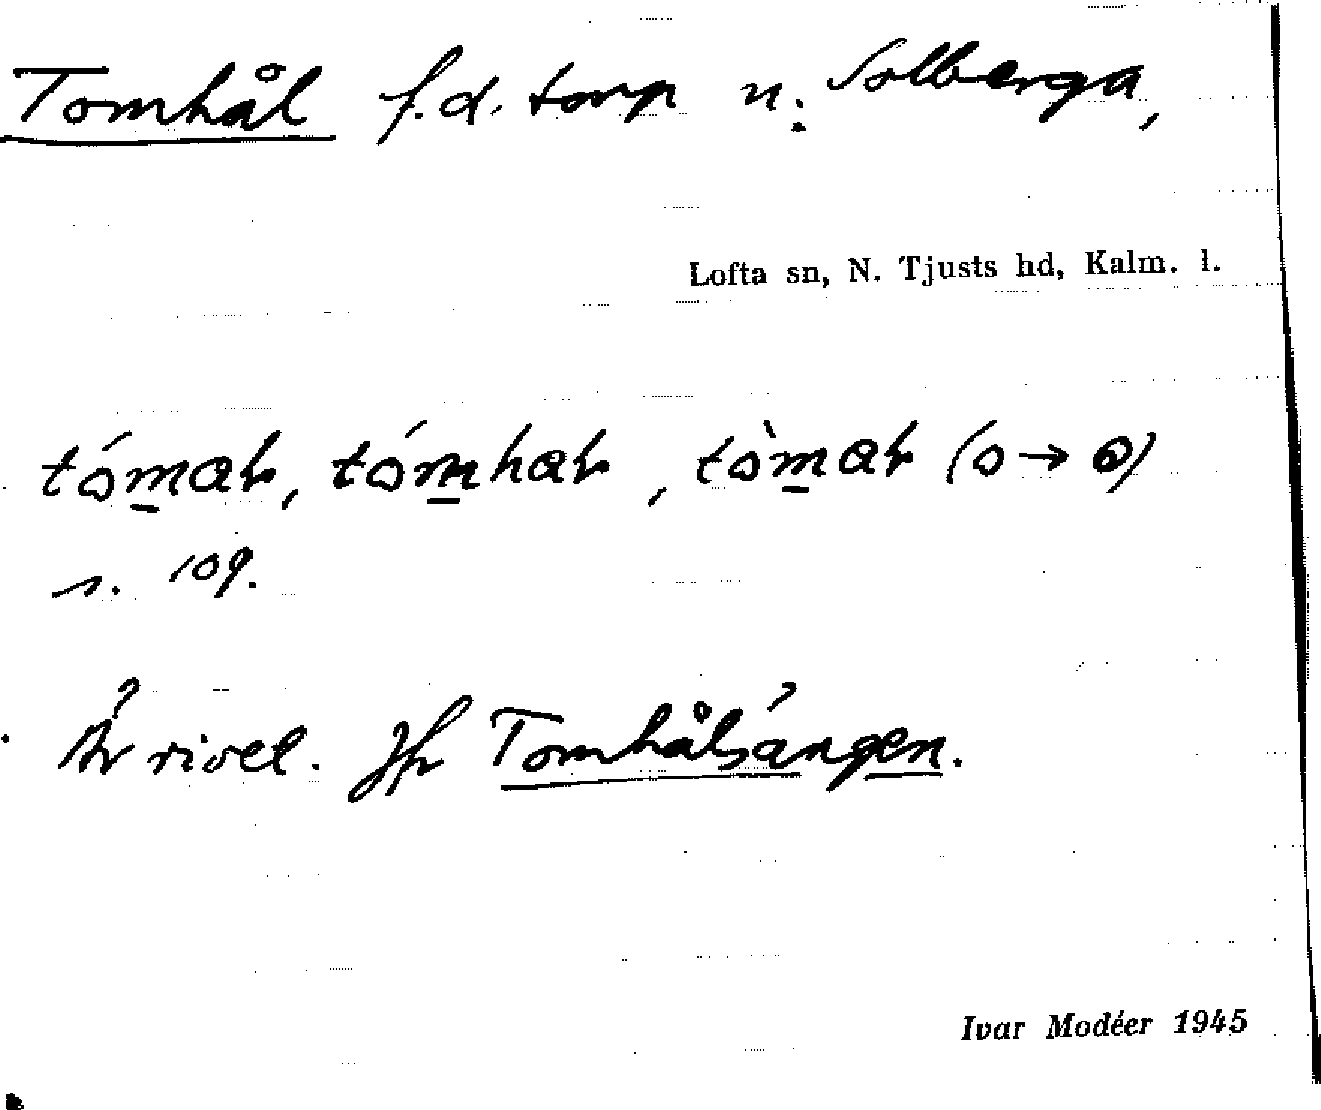 Tomhål f.d. torp u. Solberga,
Lofta sn, N. Tjusts hd, Kalm. l.
s. 109.
Är rivet. Jfr Tomhålsängen.
Ivar Modéer 1945